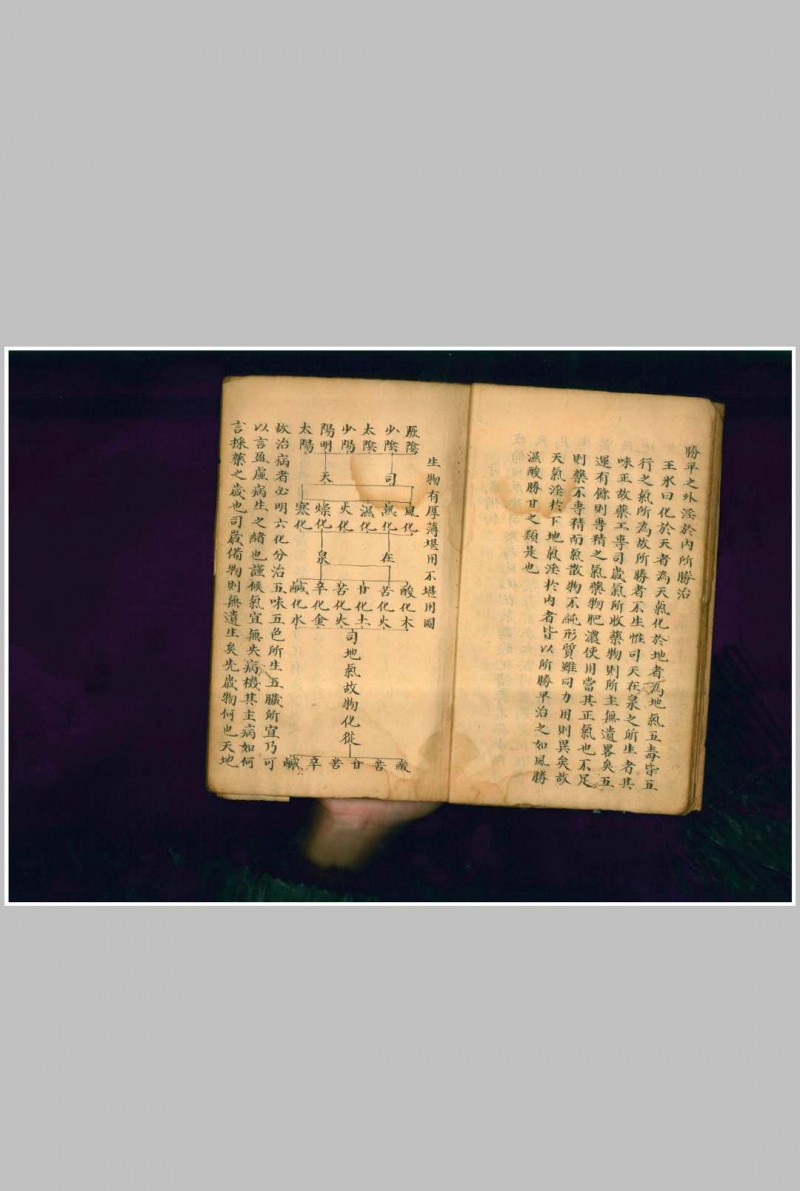 勝平之外淫於內所勝治
王氷曰化於天者為天氣化於地者為地氣五毒皆五
行之氣所為故所勝者不生惟司天在泉之所生者其
味正故藥工專司歲氣所收藥物則所主無遺畧矣五
運有餘則專精之氣藥物肥濃使用當其正氣也不足
則藥不專精而氣散物不純形質雖同力用則異矣故
天氣淫於下地氣淫於內者皆以所勝平治之如風勝
濕酸勝甘之類是也
生物有厚薄堪用不堪用圖
厥陰 少陰 太陰 少陽 陽明 太陽
司 天
風化 熱化 濕化 火化 燥化 寒化
在 泉
酸化木 苦化火 甘化土 苦化火 辛化金 鹹化水
司地氣故物化從
酸 苦 甘 苦 辛 鹹
故治病者必明六化分治五味五色所生五臟所宜乃可
以言盈虛病生之緒也謹候氣宜無失病機其主病如何
言採藥之歲也司歲備物則無遺生矣先歲物何也天地